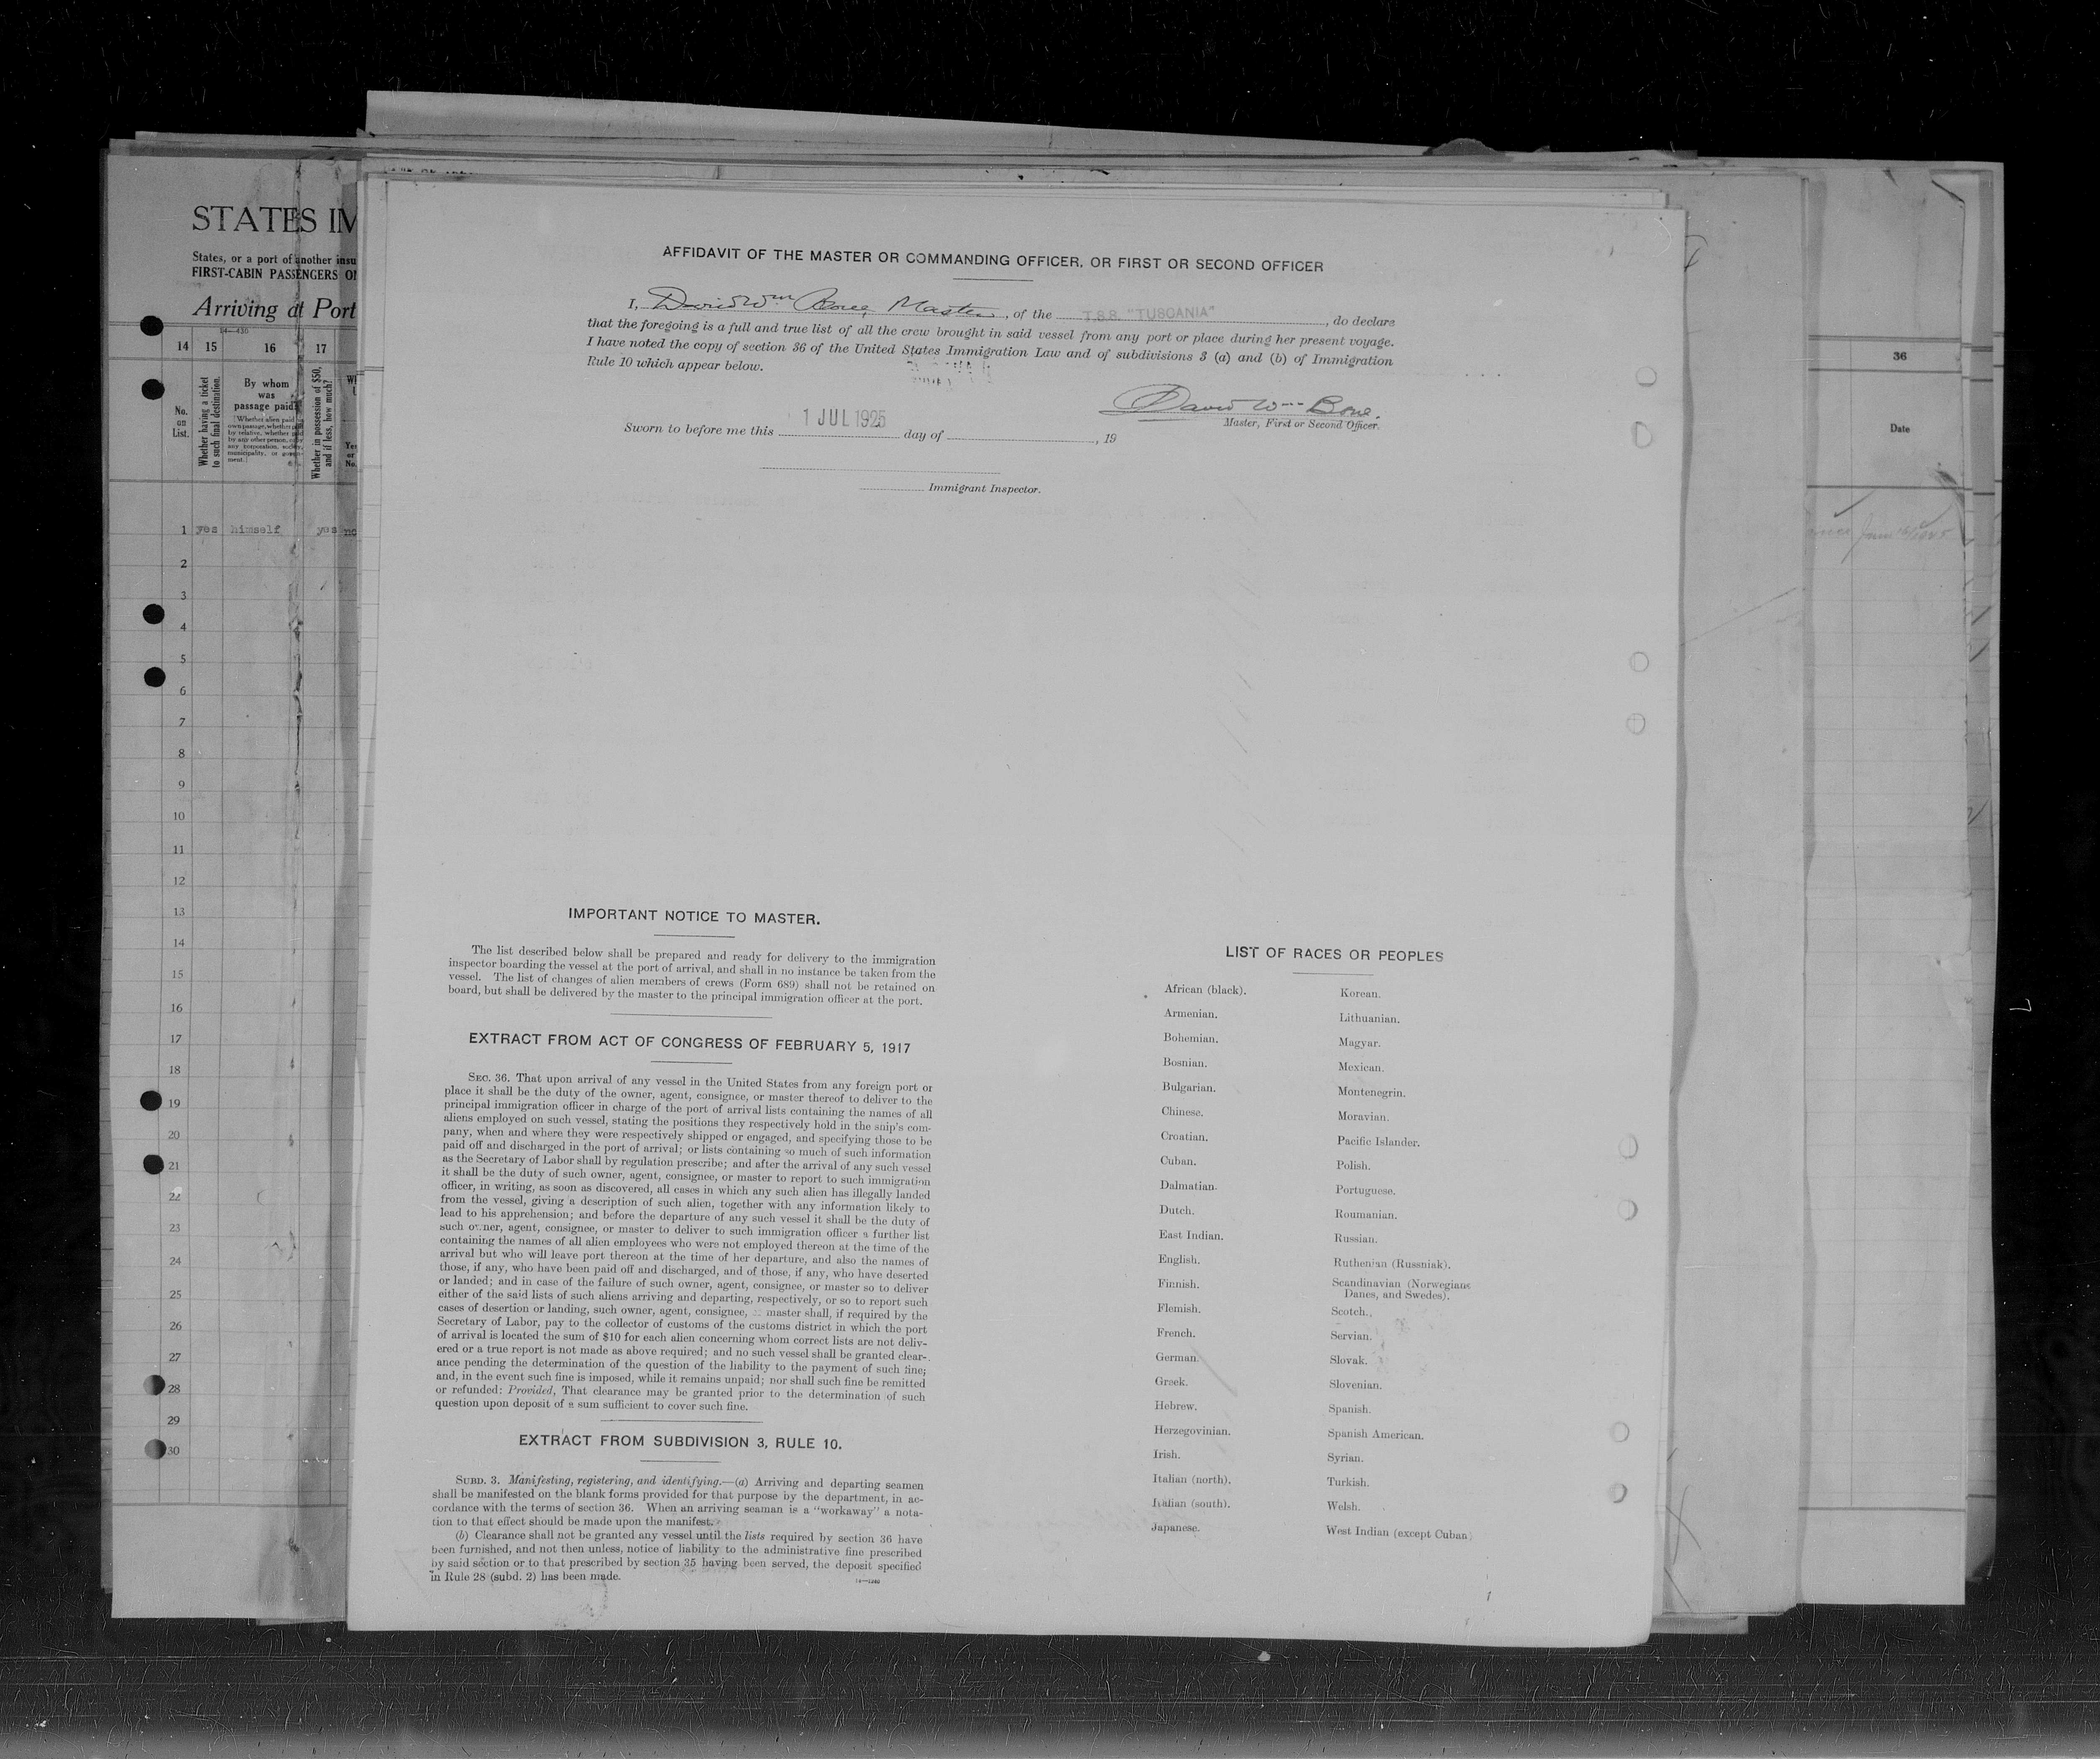 STATES IM
States, or a port of another insu
FIRST-CABIN PASSENGERS O
Arriving at Port
14 15 16 17
No. on List.
Whether having a ticket to such final destination.
By whom was passage paid?
Whether in possession of $50, and if less, how much?
1 yes himself yes no
2
3
4
5
6
7
8
9
10
11
12
13
14
15
16
17
18
19
20
21
22
23
24
25
26
27
28
29
30
AFFIDAVIT OF THE MASTER OR COMMANDING OFFICER, OR FIRST OR SECOND OFFICER
I, David Wm Bone, Master, of the T.S.S. "TUSCANIA", do declare
that the foregoing is a full and true list of all the crew brought in said vessel from any port or place during her present voyage.
I have noted the copy of section 36 of the United States Immigration Law and of subdivisions 3 (a) and (b) of Immigration
Rule 10 which appear below.
David Wm Bone.
Master, First or Second Officer.
Sworn to before me this 1 JUL 1925 day of , 19
Immigrant Inspector.
IMPORTANT NOTICE TO MASTER.
The list described below shall be prepared and ready for delivery to the immigration
inspector boarding the vessel at the port of arrival, and shall in no instance be taken from the
vessel. The list of changes of alien members of crews (Form 689) shall not be retained on
board, but shall be delivered by the master to the principal immigration officer at the port.
EXTRACT FROM ACT OF CONGRESS OF FEBRUARY 5, 1917
SEC. 36. That upon arrival of any vessel in the United States from any foreign port or
place it shall be the duty of the owner, agent, consignee, or master thereof to deliver to the
principal immigration officer in charge of the port of arrival lists containing the names of all
aliens employed on such vessel, stating the positions they respectively hold in the ship's com-
pany, when and where they were respectively shipped or engaged, and specifying those to be
paid off and discharged in the port of arrival; or lists containing so much of such information
as the Secretary of Labor shall by regulation prescribe; and after the arrival of any such vessel
it shall be the duty of such owner, agent, consignee, or master to report to such immigration
officer, in writing, as soon as discovered, all cases in which any such alien has illegally landed
from the vessel, giving a description of such alien, together with any information likely to
lead to his apprehension; and before the departure of any such vessel it shall be the duty of
such owner, agent, consignee, or master to deliver to such immigration officer a further list
containing the names of all alien employees who were not employed thereon at the time of the
arrival but who will leave port thereon at the time of her departure, and also the names of
those, if any, who have been paid off and discharged, and of those, if any, who have deserted
or landed; and in case of the failure of such owner, agent, consignee, or master so to deliver
either of the said lists of such aliens arriving and departing, respectively, or so to report such
cases of desertion or landing, such owner, agent, consignee, master shall, if required by the
Secretary of Labor, pay to the collector of customs of the customs district in which the port
of arrival is located the sum of $10 for each alien concerning whom correct lists are not deliv-
ered or a true report is not made as above required; and no such vessel shall be granted clear-
ance pending the determination of the question of the liability to the payment of such fine;
and, in the event such fine is imposed, while it remains unpaid; nor shall such fine be remitted
or refunded: Provided, That clearance may be granted prior to the determination of such
question upon deposit of a sum sufficient to cover such fine.
EXTRACT FROM SUBDIVISION 3, RULE 10.
SUBD. 3. Manifesting, registering, and identifying.—(a) Arriving and departing seamen
shall be manifested on the blank forms provided for that purpose by the department, in ac-
cordance with the terms of section 36. When an arriving seaman is a "workaway" a nota-
tion to that effect should be made upon the manifest.
(b) Clearance shall not be granted any vessel until the lists required by section 36 have
been furnished, and not then unless, notice of liability to the administrative fine prescribed
by said section or to that prescribed by section 35 having been served, the deposit specified
in Rule 28 (subd. 2) has been made.
14—1240
LIST OF RACES OR PEOPLES
African (black).
Armenian.
Bohemian.
Bosnian.
Bulgarian.
Chinese.
Croatian.
Cuban.
Dalmatian.
Dutch.
East Indian.
English.
Finnish.
Flemish.
French.
German.
Greek.
Hebrew.
Herzegovinian.
Irish.
Italian (north).
Italian (south).
Japanese.
Korean.
Lithuanian.
Magyar.
Mexican.
Montenegrin.
Moravian.
Pacific Islander.
Polish.
Portuguese.
Roumanian.
Russian.
Ruthenian (Russniak).
Scandinavian (Norwegians
Danes, and Swedes).
Scotch.
Servian.
Slovak.
Slovenian.
Spanish.
Spanish American.
Syrian.
Turkish.
Welsh.
West Indian (except Cuban)
36
Date